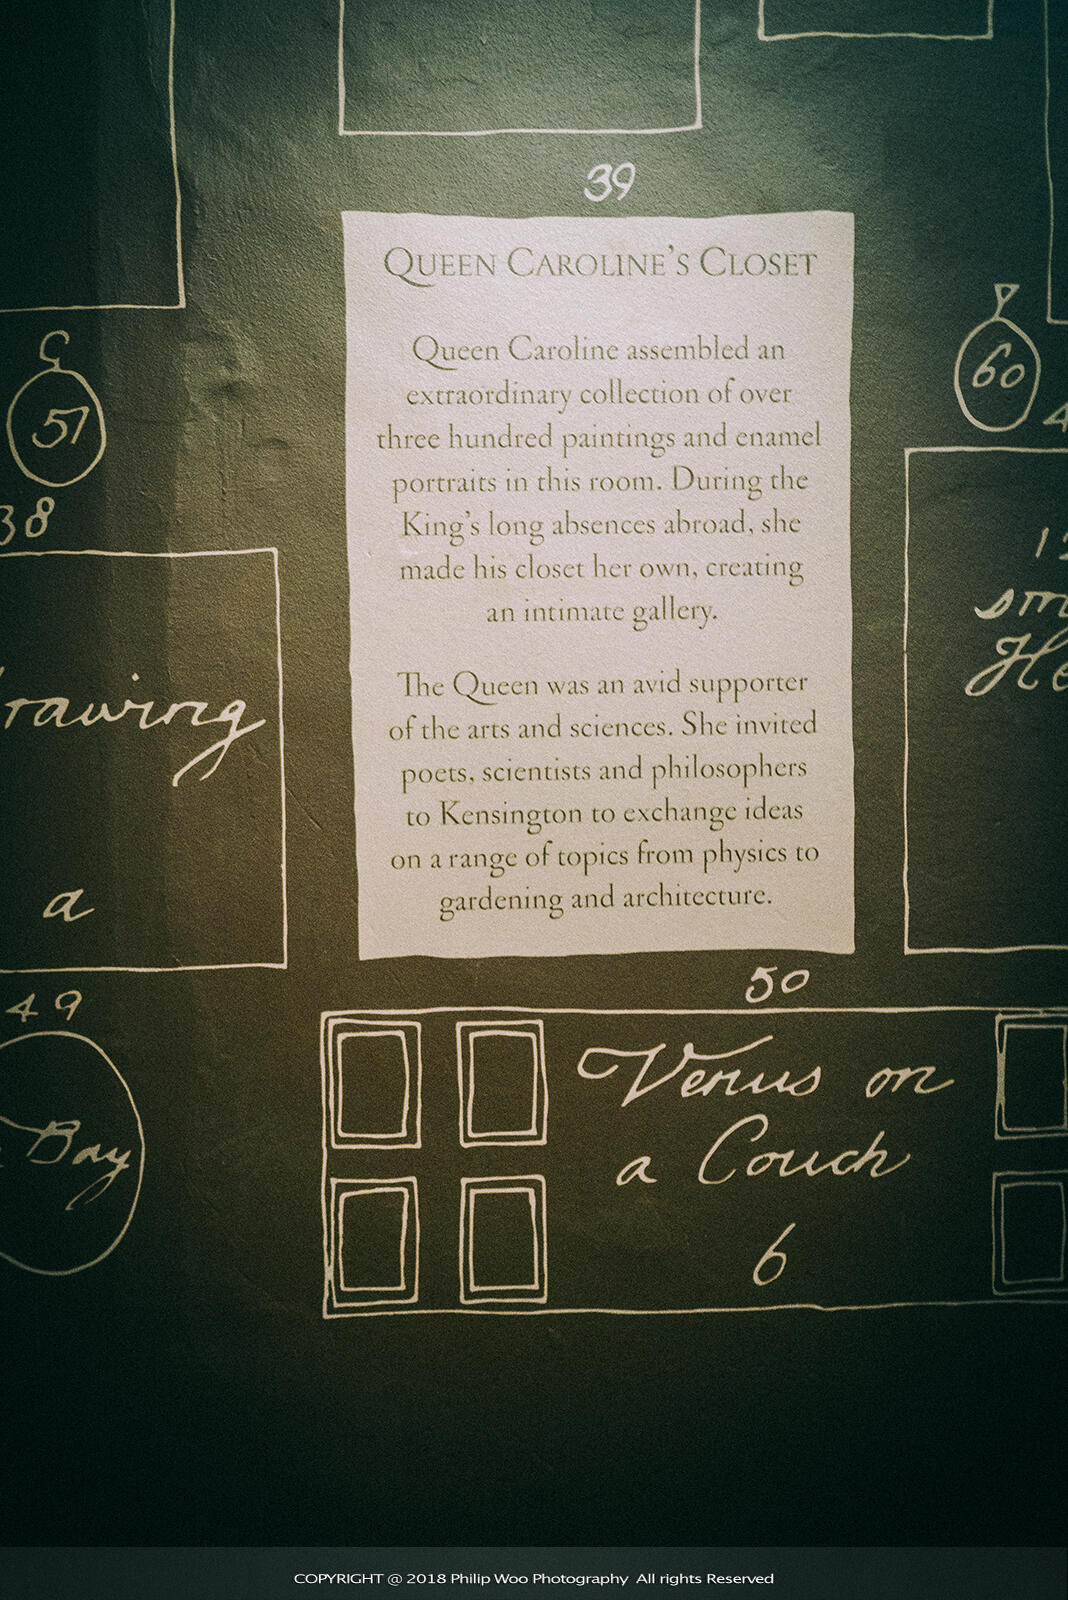 39
QUEEN CAROLINE'S CLOSET
Queen Caroline assembled an
extraordinary collection of over
three hundred paintings and enamel
portraits in this room. During the
King's long absences abroad, she
made his closet her own, creating
an intimate gallery.
The Queen was an avid supporter
of the arts and sciences. She invited
poets, scientists and philosophers
to Kensington to exchange ideas
on a range of topics from physics to
gardening and architecture.
51
38
rawing
a
49
Bay
60
4
12
sm
He
50
Venus on
a Couch
6
COPYRIGHT @ 2018 Philip Woo Photography All rights Reserved